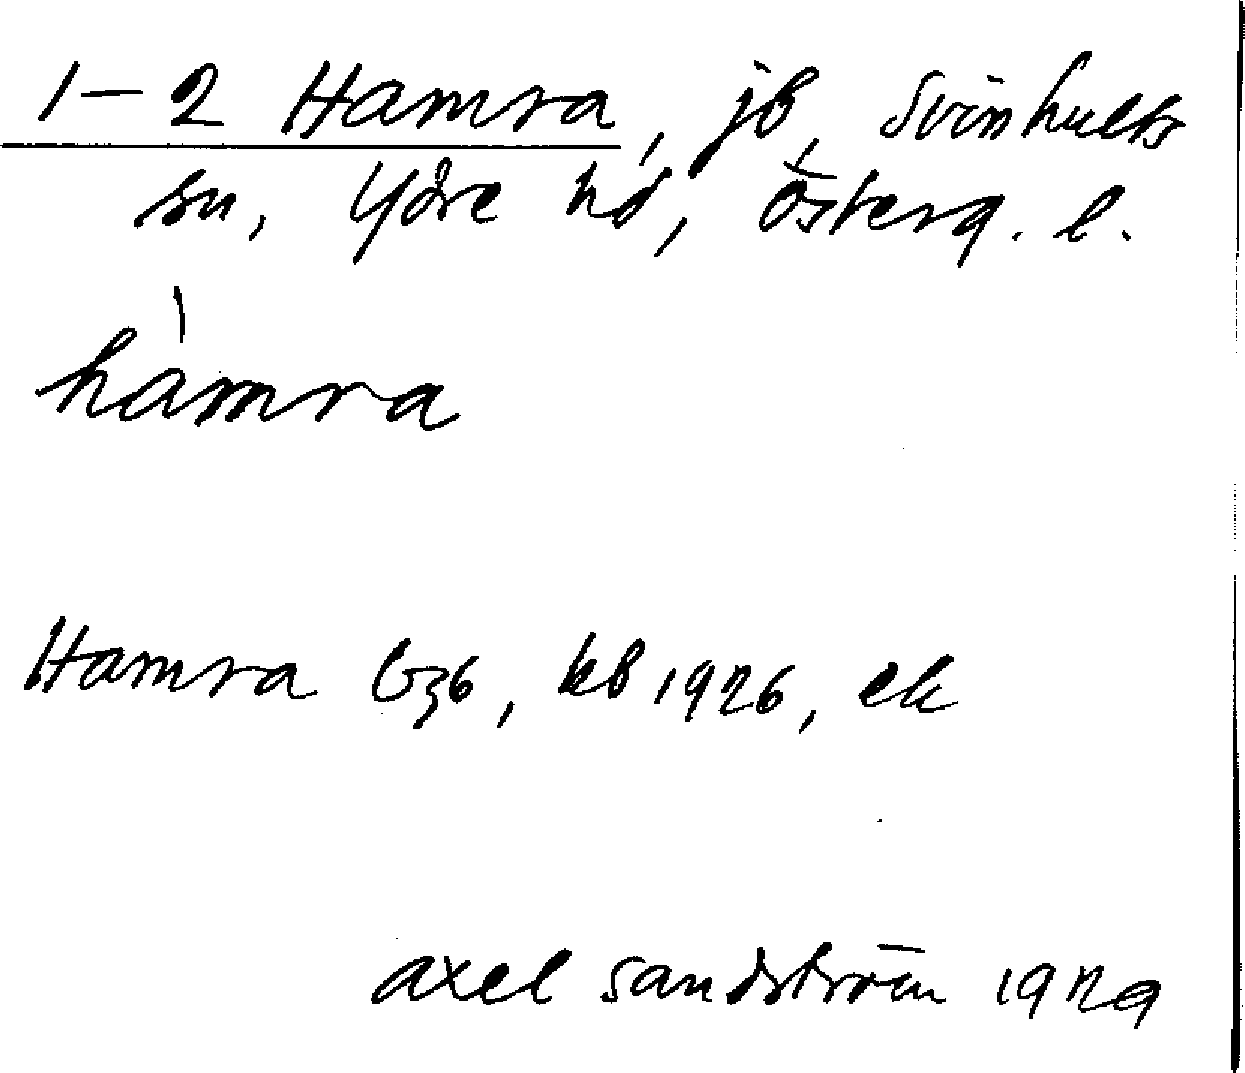 1-2 Hamra, jb, Svinhults
sn, Ydre hd, Österg. l.
hàmra
Hamra kb 1926, ek
axel sandström 1929